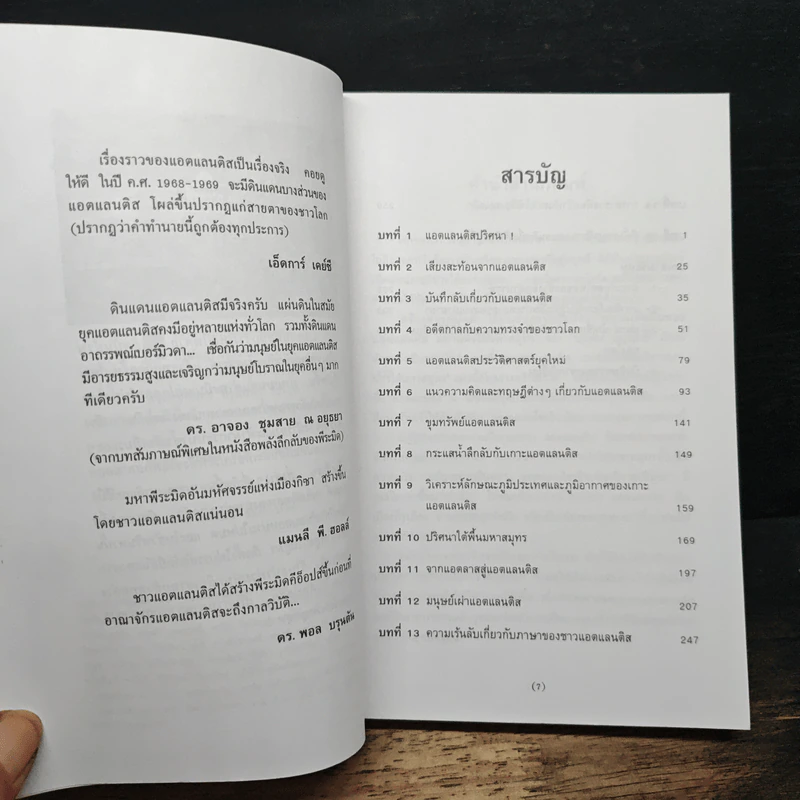 เรื่องราวของแอตแลนติสเป็นเรื่องจริง คอยดู
ให้ดี ในปี ค.ศ. 1968-1969 จะมีดินแดนบางส่วนของ
แอตแลนติส โผล่ขึ้นปรากฏแก่สายตาของชาวโลก
(ปรากฏว่าคำทำนายนี้ถูกต้องทุกประการ)
เอ็ดการ์ เคย์ซี
ดินแดนแอตแลนติสมีจริงครับ แผ่นดินในสมัย
ยุคแอตแลนติสคงมีอยู่หลายแห่งทั่วโลก รวมทั้งดินแดน
อาถรรพณ์เบอร์มิวดา... เชื่อกันว่ามนุษย์ในยุคแอตแลนติส
มีอารยธรรมสูงและเจริญกว่ามนุษย์โบราณในยุคอื่นๆ มาก
ทีเดียวครับ
ดร. อาจอง ชุมสาย ณ อยุธยา
(จากบทสัมภาษณ์พิเศษในหนังสือพลังลึกลับของพีระมิด)
มหาพีระมิดอันมหัศจรรย์แห่งเมืองกิซา สร้างขึ้น
โดยชาวแอตแลนติสแน่นอน
แมนลี พี. ฮอลล์
ชาวแอตแลนติสได้สร้างพีระมิดคีอ็อปส์ขึ้นก่อนที่
อาณาจักรแอตแลนติสจะถึงกาลวิบัติ...
ดร. พอล บรุนตัน
สารบัญ
บทที่ 1 แอตแลนติสปริศนา ! 1
บทที่ 2 เสียงสะท้อนจากแอตแลนติส 25
บทที่ 3 บันทึกลับเกี่ยวกับแอตแลนติส 35
บทที่ 4 อดีตกาลกับความทรงจำของชาวโลก 51
บทที่ 5 แอตแลนติสประวัติศาสตร์ยุคใหม่ 79
บทที่ 6 แนวความคิดและทฤษฎีต่างๆ เกี่ยวกับแอตแลนติส 93
บทที่ 7 ขุมทรัพย์แอตแลนติส 141
บทที่ 8 กระแสน้ำลึกลับกับเกาะแอตแลนติส 149
บทที่ 9 วิเคราะห์ลักษณะภูมิประเทศและภูมิอากาศของเกาะ
แอตแลนติส 159
บทที่ 10 ปริศนาใต้พื้นมหาสมุทร 169
บทที่ 11 จากแอตลาสสู่แอตแลนติส 197
บทที่ 12 มนุษย์เผ่าแอตแลนติส 207
บทที่ 13 ความเร้นลับเกี่ยวกับภาษาของชาวแอตแลนติส 247
(7)